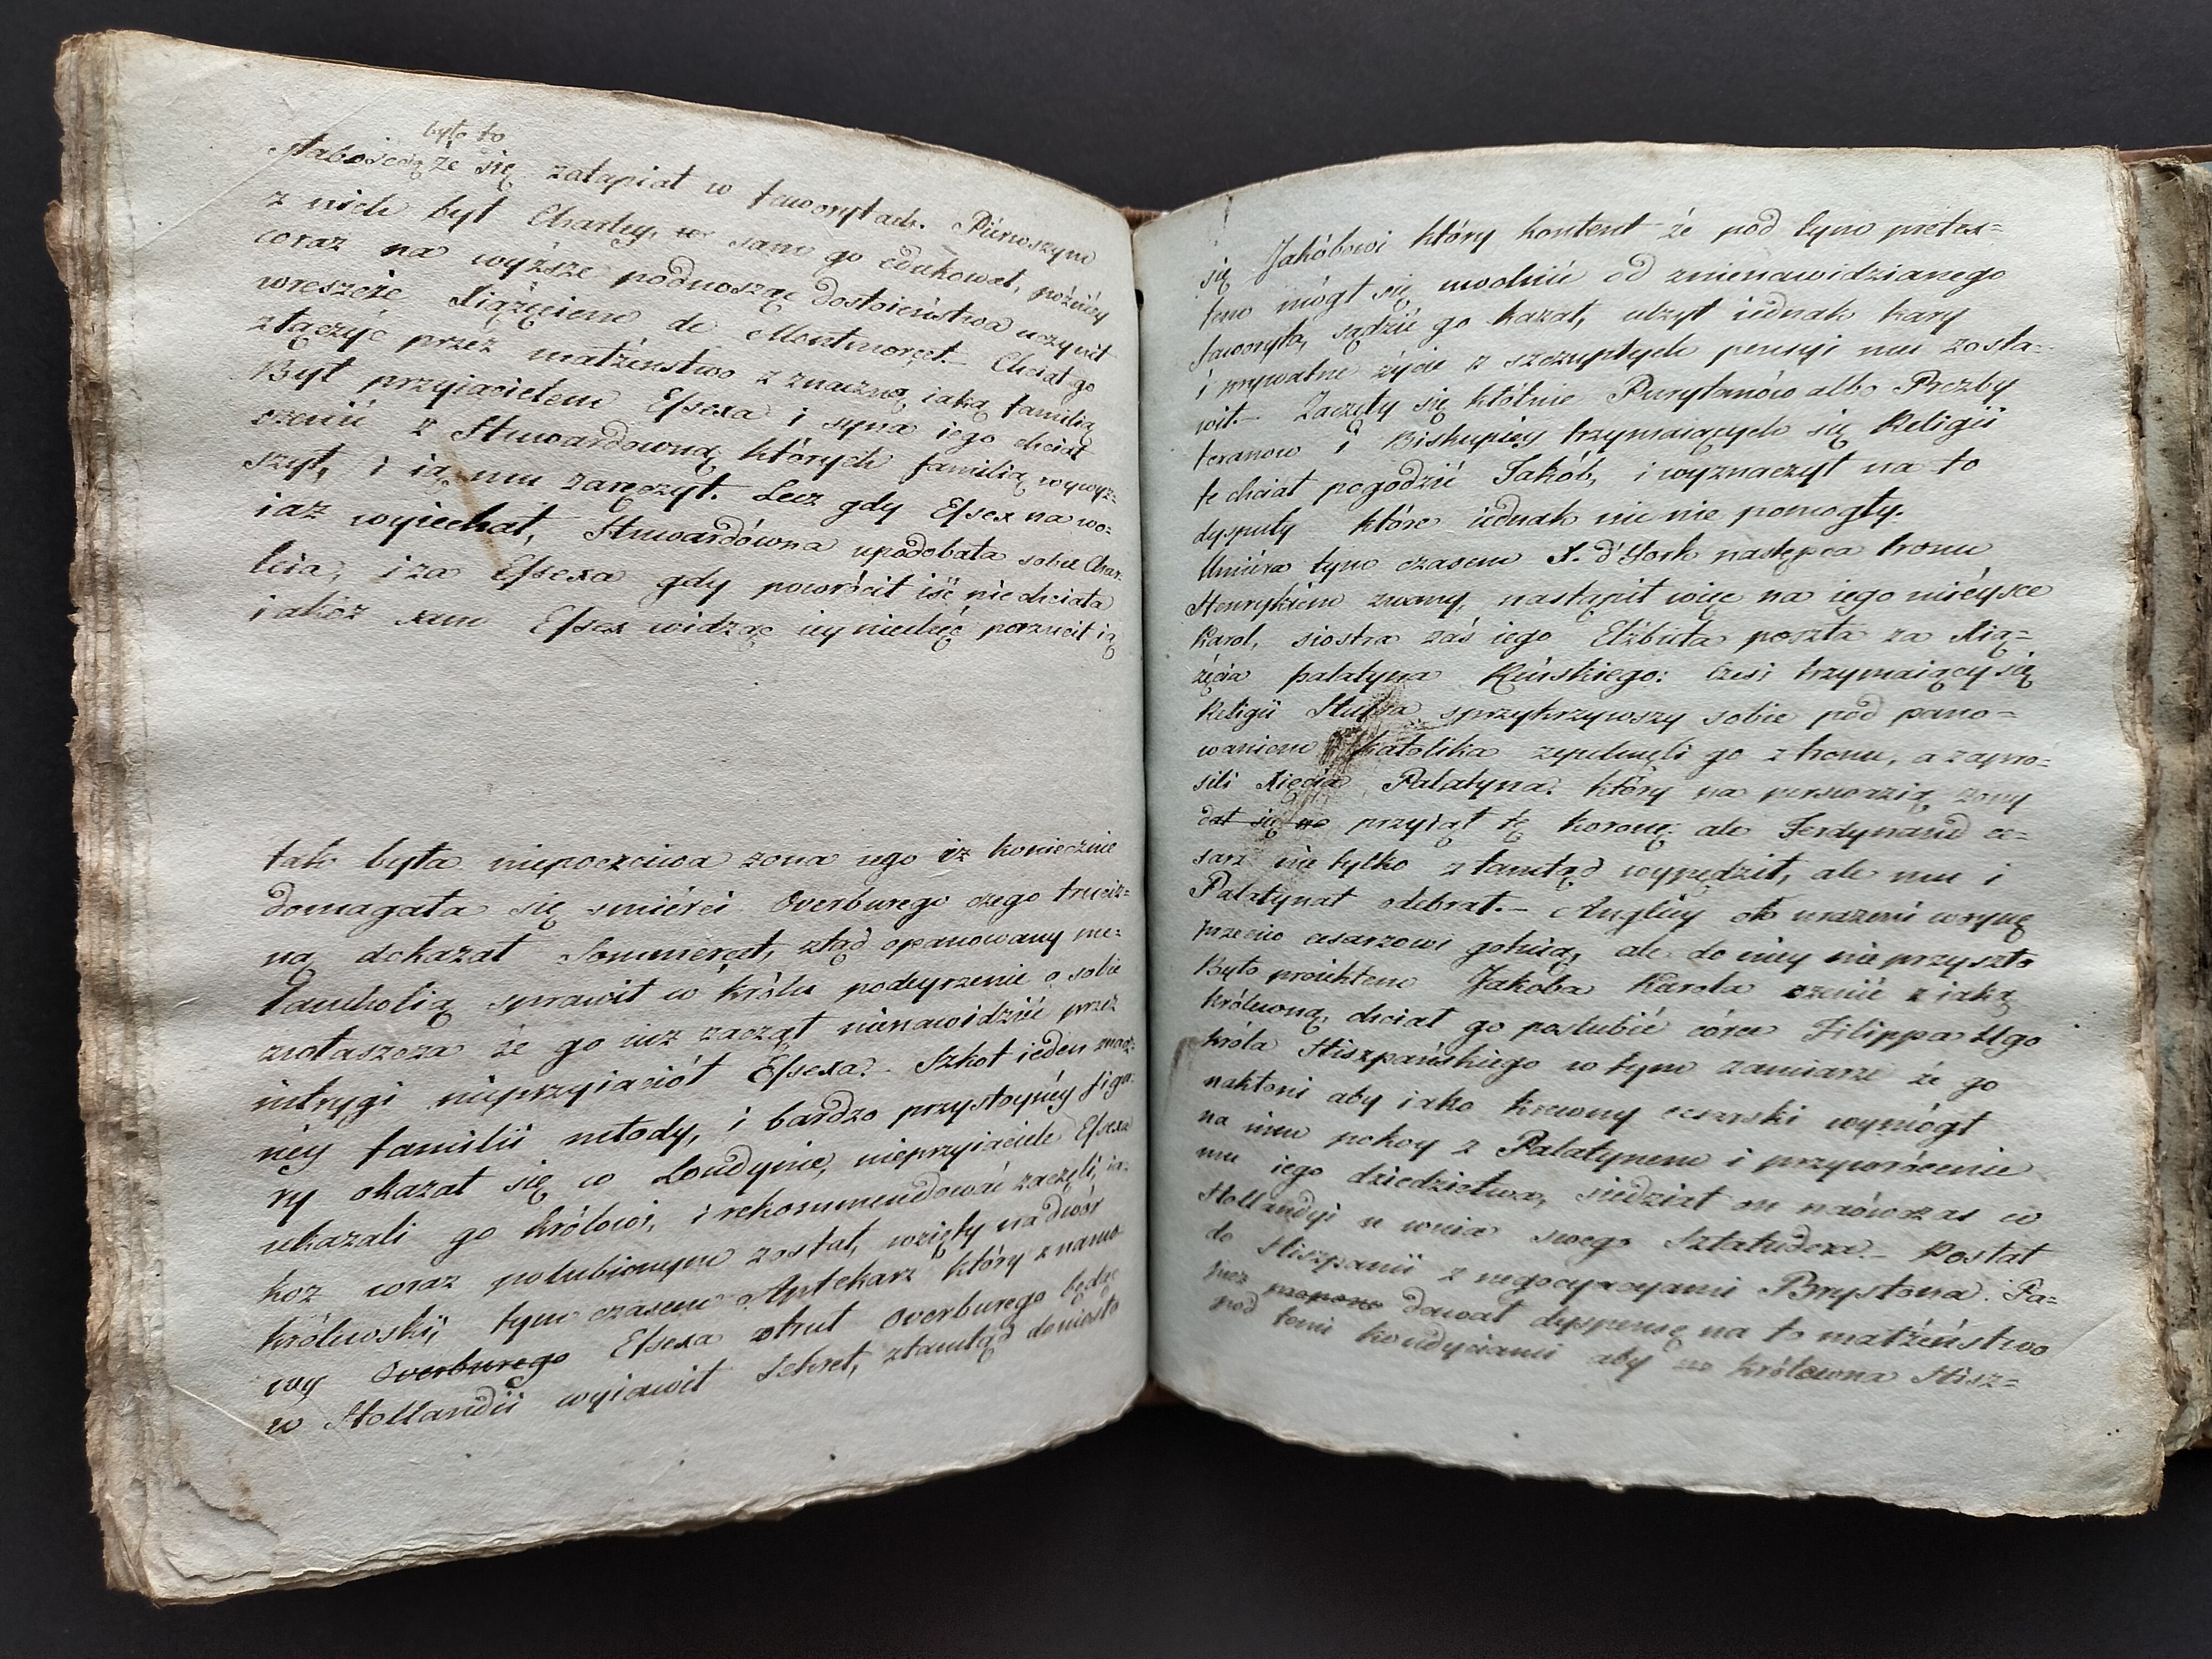 było to
słabością że się zatapiał w faworytach. Piérwszym
z nich był Charley, w sam go edukował, poźniéy
coraz na wyższe podnosząc dostoieństwa uczynił
wreszcie Xiążęciem de Montmorçet. Chciał go
złączyć przez małżeństwo z znaczną iaką familią
Był przyiacielem Essexa i syna iego chciał
ożenić z Stuwardowną których familią wywyż-
szył, i ią mu zaręczył. Lecz gdy Essex na wo-
iaż wyiechał, Stuwardówna upodobała sobie Char-
leia, i za Essexa gdy powrócił iść nie chciała
iakoż sam Essex widząc iey niechęć porzucił ią
tak była niepoczciwa żona iego iż koniecznie
domagała się smiérci Overburego czego truciz-
ną dokazał Sommerçet, ztąd opanowany me-
lancholią sprawił w królu podeyrzenie o sobie
zwłaszcza że go iuż zaczął nienawidzić przez
intrygi nieprzyiaciół Essexa. Szkot ieden znacz-
néy familii młody, i bardzo przystoynéy figu-
ry okazał się w Londynie, nieprzyiaciele Essexa
ukazali go królowi, i rekommendować zaczęli, ia-
koż coraz polubionym został, wzięty na dwór
królewski, tym czasem Aptekarz który z namo-
wy Overburego Essexa otruł Overburego będąc
w Hollandii wyiawił sekret, ztamtąd doniosło
się Jakóbowi który kontent że pod tym pretex=
tem mógł się uwolnić od znienawidzianego
faworyta, sądzić go kazał, ulżył iednak kary
i prywatne życie z szczupłych pensyi mu zosta-
wił. Zaczęły się kłótnie Purytanów albo Prezby
teranow i Biskupiey trzymaiących się Religii
te chciał pogodzić Jakób, i wyznaczył na to
dysputy które iednak nic nie pomogły.
Umiéra tym czasem X. d'York następca tronu
Henrykiem zwany, nastąpił więc na iego mieysce
Karol, siostra zaś iego Elżbieta poszła za Xią=
żęcia palatyna Reńskiego: Czesi trzymaiący się
Religii Hussa sprzykrzywszy sobie pod pano=
waniem katolika zepchnęli go z tronu, a zapro=
sili Xięcia Palatyna. który na perswazią żony
dał się na przyiął tę koronę. ale Ferdynand ce=
sarz nie tylko z tamtąd wypędził, ale mu i
Palatynat odebrał.- Anglicy o to urażeni woynę
przeciw cesarzowi gotuią, ale do niey nie przyszło
Było proiektem Jakóba Karola ożenić z iaką
królewną, chciał go poslubić córce Filippa IIgo
króla Hiszpańskiego w tym zamiarze że go
nakłoni aby iako krewny cesarski wymógł
na nim pokoy z Palatynem i przywrócenie
mu iego dziedzictwa, siedział on naówczas w
Hollandyi u wuia swego Sztatudera.- Posłał
do Hiszpanii z negocyacyami Brystona. Pa=
pież propono dawał dyspensę na to małżeństwo
pod temi kondyciami aby królewna Hisz=